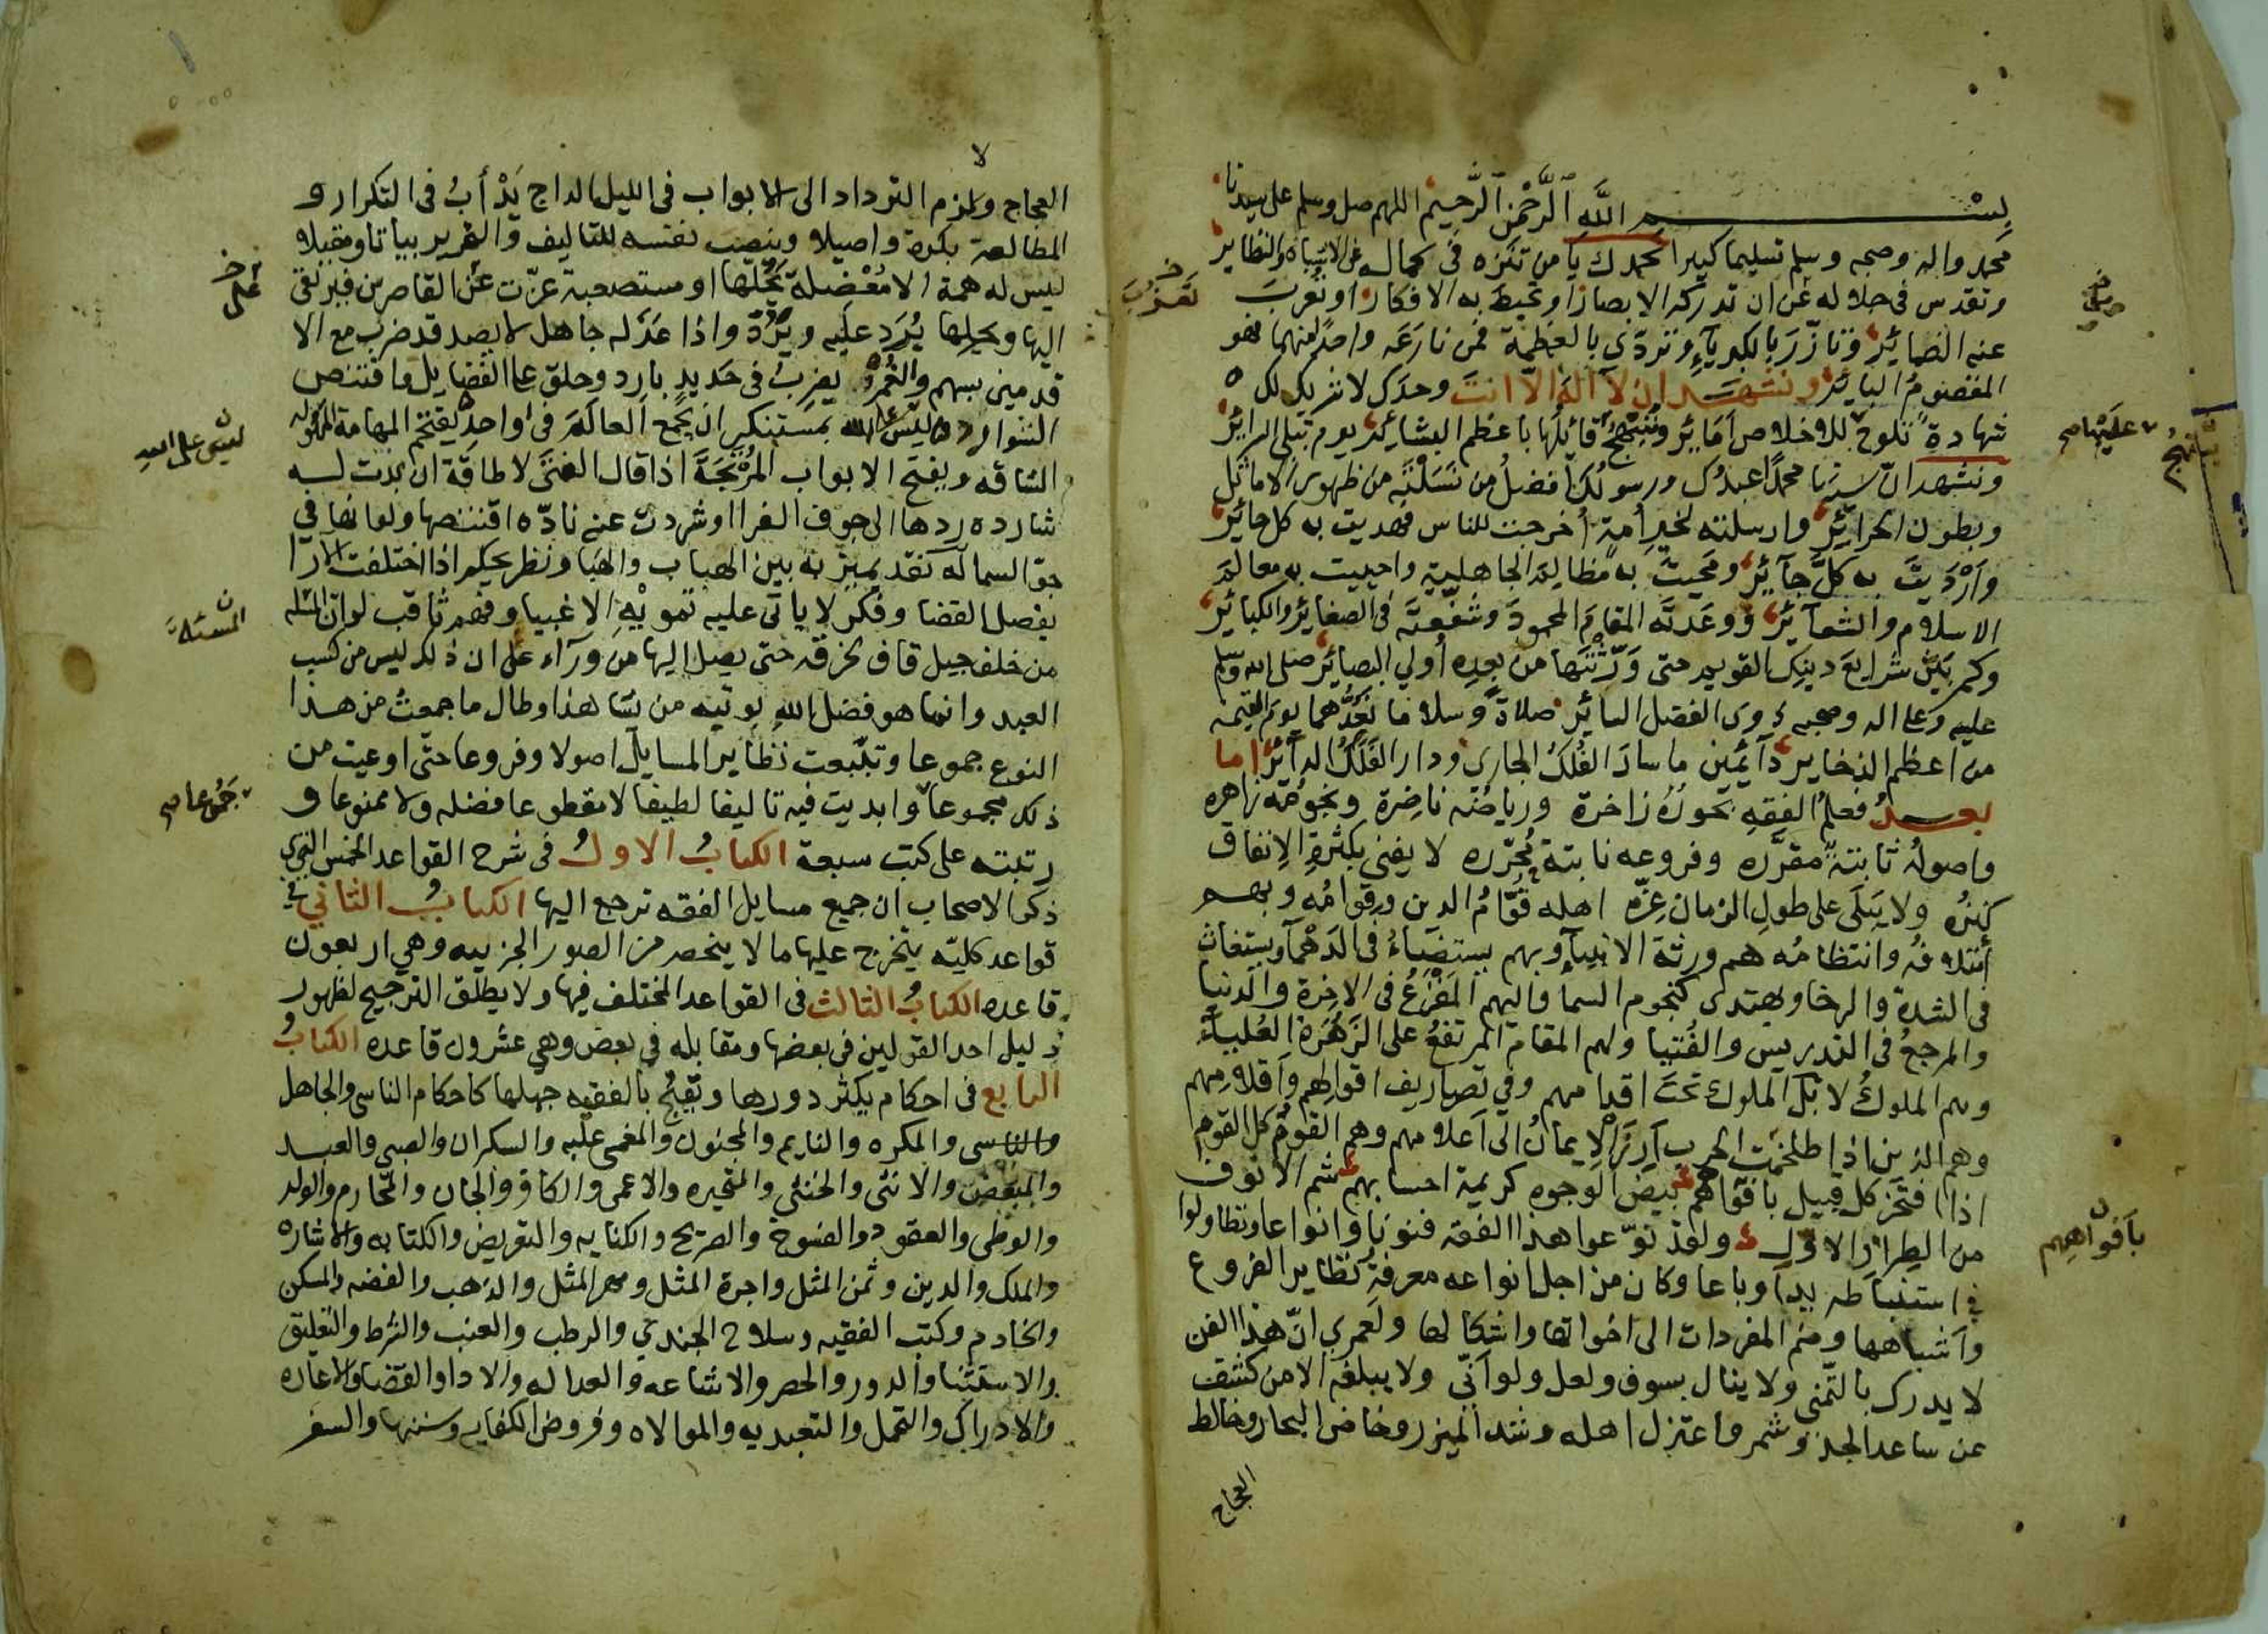 بسم الله الرحمن الرحيم اللهم صل وسلم على سيدنا
محمد واله وصحبه وسلم تسليما كبيرا نحمدك يا من تنزه في كماله عن الاشباه والنظاير
وتقدس في جلاله عن ان تدركه الابصار او تحيط به الافكار او تعرب
عنه الضمائر وتازر بالكبرياء وتردى بالعظمة فمن نازعه واحد منهما فهو
المقصوم البائر ونشهد ان لا اله الا انت وحدك لا شريك لك
شهادة تلوح للاخلاص امائر وتنتهج قائلها باعظم البشائر يوم تبلى السرائر
ونشهد ان سيدنا محمدا عبدك ورسولك افضل من نسلته من ظهور الاماثل
وبطون الحرائر وارسلته لخير امة اخرجت للناس فهديت به كل حائر
وارديت به كل جائر ومحيت به مظالم الجاهلية واحييت به معالم
الاسلام والشعائر ووعدته المقام المحمود وشفعته في الصغائر والكبائر
وكم بين شرايع دينك القويم حتى ورثتها من بعده أولي البصائر صلى الله وسلم
عليه وعلى اله وصحبه ذوي الفضل السائر صلاة وسلاما نعدهما يوم القيمه
من اعظم الذخاير دآئمين ما سار الفلك الجاري ودار الفلك الدآئر اما
بعد فعلم الفقه بحوره زاخرة ورياضه ناضرة ونجومه زاهره
واصوله ثابتة مقرره وفروعه نابتة محرره لا يفنى بكثرة الانفاق
كنزه ولا يبلى على طول الزمان عزه اهله قوام الدين وقوامه وبهم
أئتلافه وانتظامه هم ورثة الانبياء وبهم يستضاء في الدهماء ويستغاث
في الشدة والرخا ويهتدى كنجوم السما واليهم المفزع في الاخرة والدنيا
والمرجع في التدريس والفتيا ولهم المقام المرتفع على الزهرة العلياء
وهم الملوك لا بل الملوك تحت اقدامهم وفي تصاريف اقوالهم واقلامهم
وهم الذين اذا اطلخمت الحرب آرز الايمان الى أعلامهم وهم القوم كل القوم
اذا افتخر كل قبيل باقوامهم بيض الوجوه كريمة احسابهم شم الانوف
من الطراز الاول ولقد نوعوا هذا الفقه فنونا وانواعا وتطاولوا
في استنباطه يدا وباعا وكان من اجل انواعه معرفة نظاير الفروع
وأشباهها وضم المفردات الى اخواتها واشكالها ولعمري ان هذا الفن
لا يدرك بالتمني ولا ينال بسوف ولعل ولو أني ولا يبلغه الا من كشف
عن ساعد الجد وشمر واعتزل اهله وشد الميزر وخاض البحار وخالط
العجاج
تعزب
عليها صح
بافواههم
العجاج ولازم الترداد الى الابواب في الليل الداج يدأب في التكرار و
المطالعة بكرة واصيلا وينصب نفسه للتاليف والتحرير بياتا ومقيلا
ليس له همة الا معضلة يحلها او مستصعبة عزت عن القاصرين فيرتقي
اليها ويحلها يرد عليه ويرد واذا عذله جاهل لا يصد قد ضرب مع الا
قدمين بسهم والغمر يضرب في حديد بارد وحلق على الفضايل واقتنص
الشوارد وليس على الله بمستنكر ان يجمع العالم في واحد يقتحم المهامة المهوله
الشاقه ويفتح الابواب المرتجة اذا قال الغبى لا طاقة ان بدت له
شارده ردها الى جوف الفرا او شردت عنه نادّه اقتنصها ولو انها في
جو السما له نقد يميز به بين الهباب والهبا ونظر يحكم اذا اختلفت الارا
بفصل القضا وفكر لا ياتى عليه تمويه الاغبيا وفهم ثاقب لو ان المسئله
من خلف جبل قاف لخرقه حتى يصل اليها من ورآء على ان ذلك ليس من كسب
العبد وانما هو فضل الله يوتيه من يشا هذا وطال ما جمعت من هذا
النوع جموعا وتتبعت نظاير المسايل اصولا وفروعا حتى اوعيت من
ذلك مجموعا وابديت فيه تاليفا لطيفا لا مقطوعا فضله ولا ممنوعا و
رتبته على كتب سبعة الكتاب الاول في شرح القواعد الخمس التي
ذكر الاصحاب ان جميع مسايل الفقه ترجع اليها الكتاب الثاني في
قواعد كلية يتخرج عليها ما لا ينحصر من الصور الجزييه وهي اربعون
قاعده الكتاب الثالث في القواعد المختلف فيها ولا يطلق الترجيح لظهور
دليل احد القولين في بعضها ومقابله في بعض وهي عشرون قاعده الكتاب
الرابع في احكام يكثر دورها ويقبح بالفقيه جهلها كاحكام الناسى والجاهل
والناسى والمكره والنايم والمجنون والمغمى عليه والسكران والصبي والعبد
والمبعض والانثى والخنثى والمتحيره والاعمى والكافر والجان والمحارم والولد
والوطى والعقود والفسوخ والصريح والكنايه والتعريض والكتابه والاشاره
والملك والدين وثمن المثل واجرة المثل ومهر المثل والذهب والفضه والمسكن
والخادم وكتب الفقيه وسلاح الجندي والرطب والعنب والشرط والتعليق
والاستثنا والدور والحصر والاشاعه والعداله والادا والقضا والاعاده
والادراك والتحمل والتعبديه والموالاه وفروض الكفايه وسننها والسفر
ليس على الله
المسئلة
جموعا صح